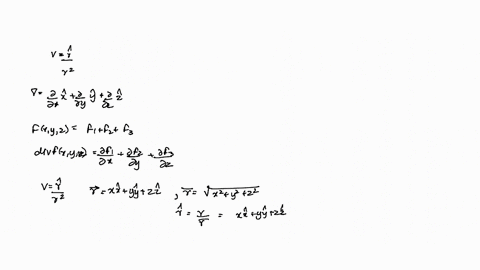 V = r̂/r²
∇ = ∂/∂x x̂ + ∂/∂y ŷ + ∂/∂z ẑ
f(x,y,z) = f₁ + f₂ + f₃
div f(x,y,z) = ∂f₁/∂x + ∂f₂/∂y + ∂f₃/∂z
V = r̂/r² r⃗ = xx̂ + yŷ + zẑ , r = √(x² + y² + z²)
r̂ = r/r = xx̂ + yŷ + zẑ